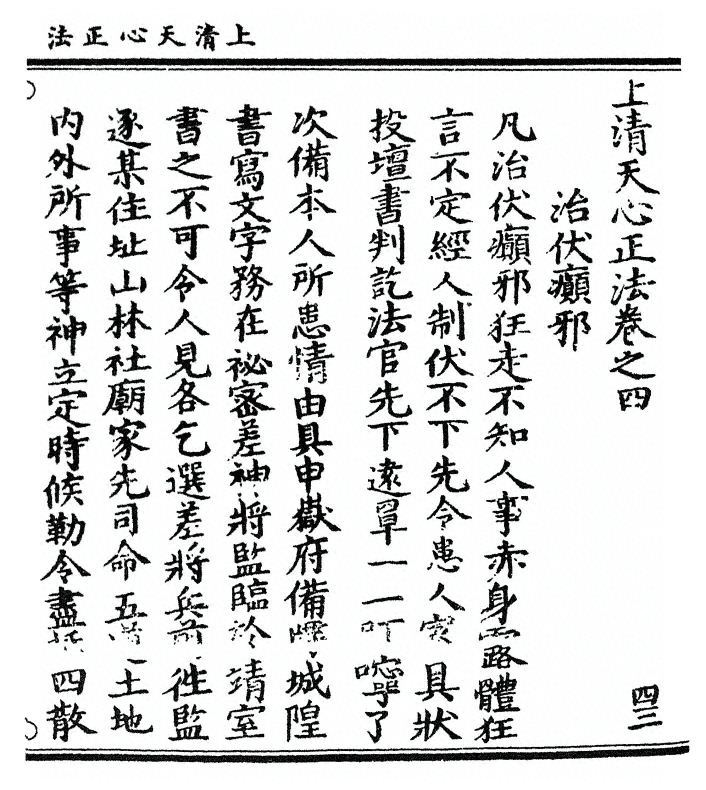 上清天心正法
上清天心正法卷之四
治伏癲邪
凡治伏癲邪狂走不知人事赤身露體狂
言不定經人制伏不下先令患人家具狀
投壇書判訖法官先下遠罩一一叮嚀了
次備本人所患情由具申嶽府備牒城隍
書寫文字務在祕密差神將監臨於靖室
書之不可令人見各乞選差將兵前徃監
逐某住址山林社廟家先司命五道土地
内外所事等神立定時候勒令盡 四散
四三